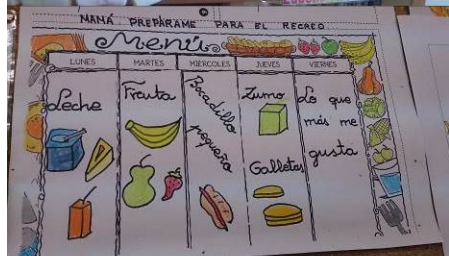 MAMÁ PREPÁRAME PARA EL RECREO
Menú
LUNES MARTES MIÉRCOLES JUEVES VIERNES
Leche
Fruta
Bocadillo
pequeño
Zumo
Galletas
Lo que
más me
gusta